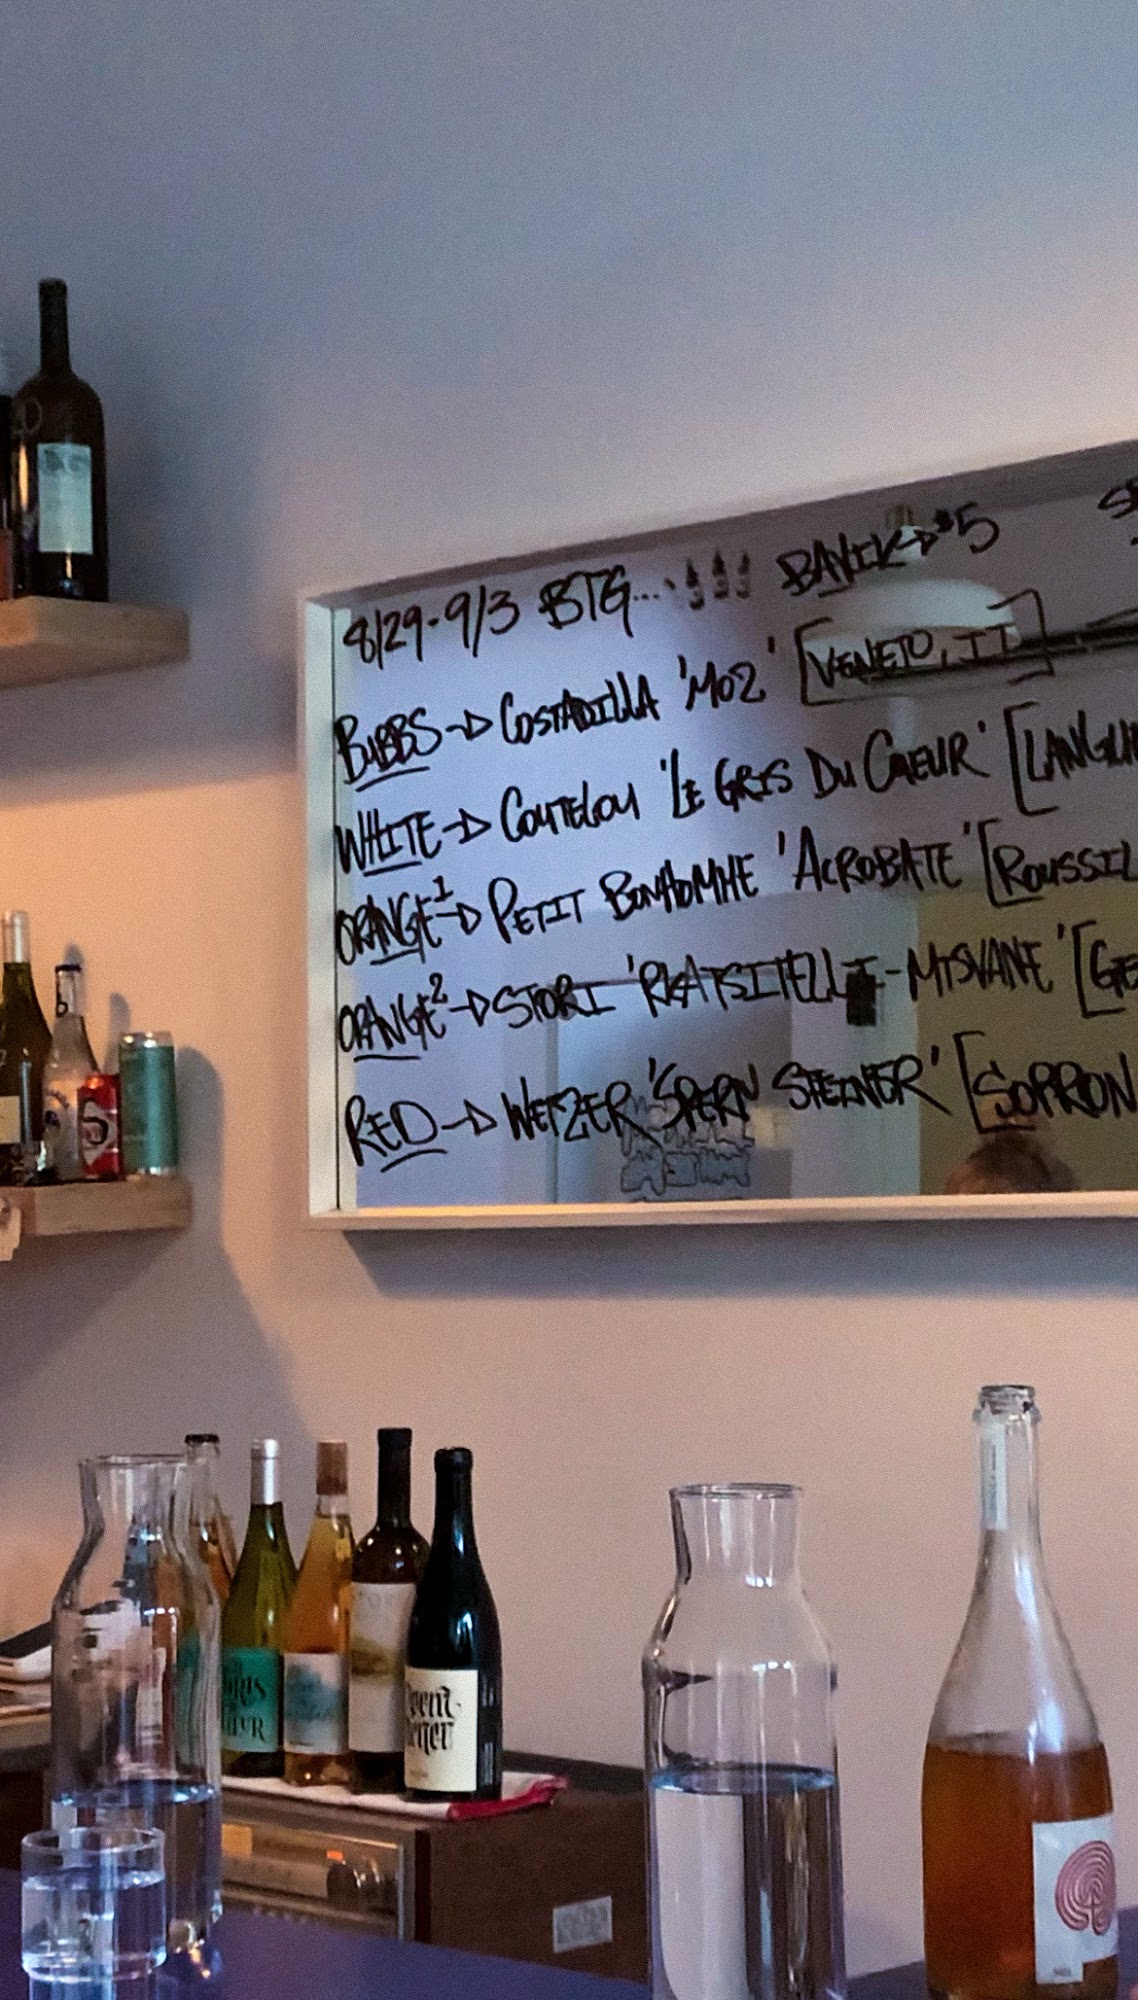 8/29-9/3 BTG... BAVIK→$5
BUBBS→COSTADILLA 'MOZ' [VENETO, IT]
WHITE→COUTELOU 'LE GRIS DU CŒUR' [LANGU
ORANGE¹→PETIT BONHOMME 'ACROBATE' [ROUSSIL
ORANGE²→STORI 'RKATSITELI-MTSVANE' [GE
RED→WETZER 'SPERN STEINER' [SOPRON
S